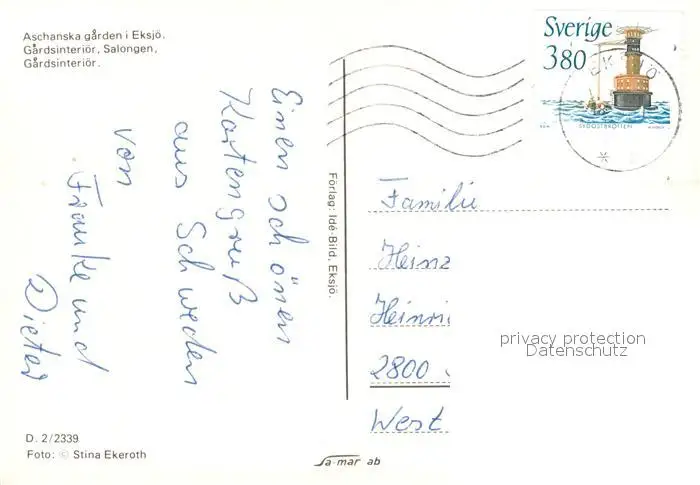 Aschanska gården i Eksjö.
Gårdsinteriör, Salongen,
Gårdsinteriör.
Einen schönen
Kartengruß
aus Schweden
von
Frauke und
Dieter
D. 2/2339
Foto: © Stina Ekeroth
Förlag: Idé-Bild, Eksjö.
Sa-mar ab
Sverige
380
SYDOSTBROTTEN
EKSJÖ
Familie
Heinz
Heinri
2800
West
privacy protection
Datenschutz